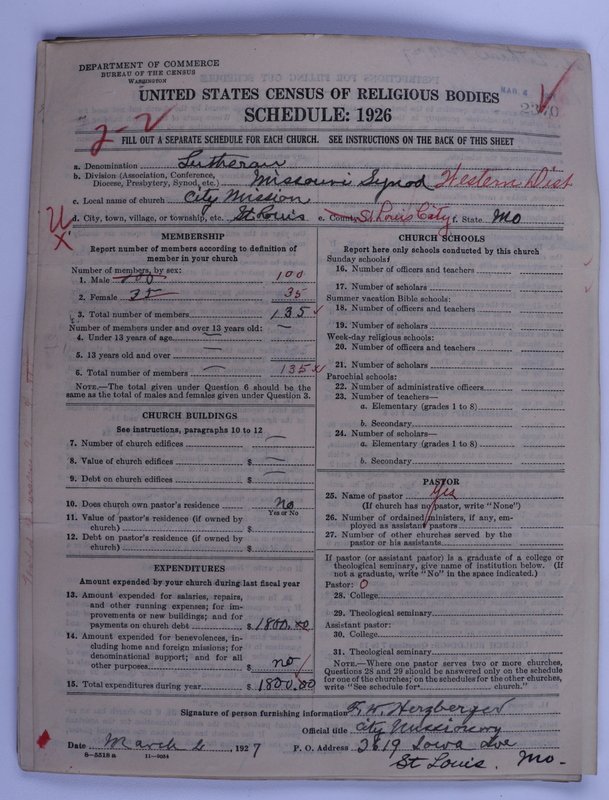 DEPARTMENT OF COMMERCE
BUREAU OF THE CENSUS
WASHINGTON
UNITED STATES CENSUS OF RELIGIOUS BODIES
SCHEDULE: 1926
2-2
FILL OUT A SEPARATE SCHEDULE FOR EACH CHURCH. SEE INSTRUCTIONS ON THE BACK OF THIS SHEET
a. Denomination Lutheran
b. Division (Association, Conference,
Diocese, Presbytery, Synod, etc.) Missouri Synod Western Dist
c. Local name of church City Mission
d. City, town, village, or township, etc. St Louis e. County St Louis City f. State Mo
MEMBERSHIP
Report number of members according to definition of
member in your church
Number of members, by sex:
1. Male 100 100
2. Female 35 35
3. Total number of members 135
Number of members under and over 13 years old: —
4. Under 13 years of age —
5. 13 years old and over —
6. Total number of members — 135
NOTE.—The total given under Question 6 should be the
same as the total of males and females given under Question 3.
CHURCH BUILDINGS
See instructions, paragraphs 10 to 12
7. Number of church edifices —
8. Value of church edifices $ —
9. Debt on church edifices $ —
10. Does church own pastor's residence no
Yes or No
11. Value of pastor's residence (if owned by
church) $
12. Debt on pastor's residence (if owned by
church) $
EXPENDITURES
Amount expended by your church during last fiscal year
13. Amount expended for salaries, repairs,
and other running expenses; for im-
provements or new buildings; and for
payments on church debt $ 1800.00
14. Amount expended for benevolences, in-
cluding home and foreign missions; for
denominational support; and for all
other purposes $ no
15. Total expenditures during year $ 1800.00
CHURCH SCHOOLS
Report here only schools conducted by this church
Sunday schools:
16. Number of officers and teachers
17. Number of scholars
Summer vacation Bible schools:
18. Number of officers and teachers
19. Number of scholars
Week-day religious schools:
20. Number of officers and teachers
21. Number of scholars
Parochial schools:
22. Number of administrative officers
23. Number of teachers—
a. Elementary (grades 1 to 8)
b. Secondary
24. Number of scholars—
a. Elementary (grades 1 to 8)
b. Secondary
PASTOR
25. Name of pastor yes
(If church has no pastor, write "None")
26. Number of ordained ministers, if any, em-
ployed as assistant pastors
27. Number of other churches served by the
pastor or his assistants
If pastor (or assistant pastor) is a graduate of a college or
theological seminary, give name of institution below. (If
not a graduate, write "No" in the space indicated.)
Pastor: 0
28. College
29. Theological seminary
Assistant pastor:
30. College
31. Theological seminary
NOTE.—Where one pastor serves two or more churches,
Questions 28 and 29 should be answered only on the schedule
for one of the churches; on the schedules for the other churches,
write "See schedule for church."
Signature of person furnishing information F. W. Herzberger
Official title City Missionary
Date March 2, 1927 P. O. Address 2619 Iowa Ave
8-5518a 11-9024 St Louis. Mo-